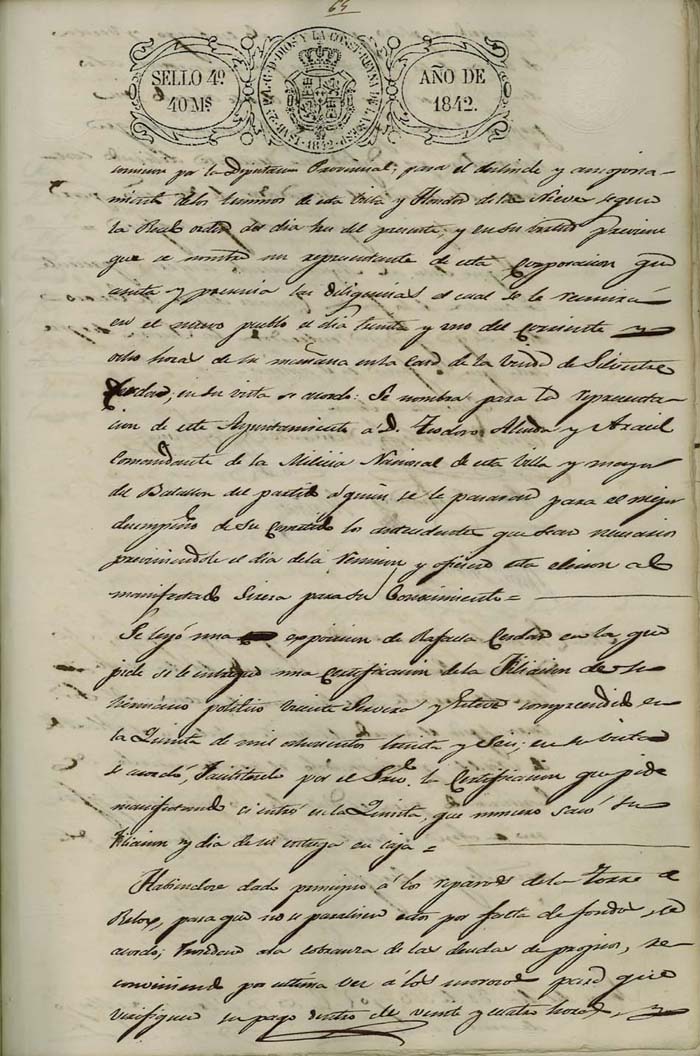 65
SELLO 4º
40 Ms
ISAB. 2ª P. L. G. D. DIOS Y LA CONST. REYNA DE LAS ESP.
1842
AÑO DE
1842.
por la Diputacion Provincial, para el deslinde y amojona-
miento delos terminos de esta Villa y Hondon de las Nieves segun
la Real orden del dia tres del presente, y en su virtud previene
que se nombre un representante de esta Corporacion que
asista y presencia las diligencias el cual se le reunirá
en el nuevo pueblo el dia treinta y uno del corriente y
ocho horas de su mañana en la casa de la Viuda de Silvestre
en su vista se acordo: Se nombra para la representa-
cion de este Ayuntamiento a D. Teodoro Alenda y
Comandante de la Milicia Nacional de esta Villa y mayor
del Batallon del partido á quien se le pasaran para el mejor
desempeño de su cometido los antecedentes que sean necesarios
previniendole el dia dela reunion y oficiese esta eleccion al
manifestado para su conocimiento =
Se leyó una exposicion de Rafaela Cerdan en la que
pide se le entregue una Certificacion de la Filiacion de su
hermano politico Vicente Cervera y Esteve comprendido en
la Quinta de mil ochocientos treinta y seis; en su vista
se acordó, Facilitesele por el Srio. la Certificacion que pide
manifestando si entró en la Quinta, que numero sacó su
Filiacion y dia de su entrega en caja =
Habiendose dado principio á los reparos de la Torre de
Relox, para que no se paralicen estos por falta de fondos, se
acordo; Procedase ala cobranza de las deudas de propios, re-
conviniendo por ultima vez á los morosos para que
verifiquen su pago dentro de veinte y cuatro horas, y